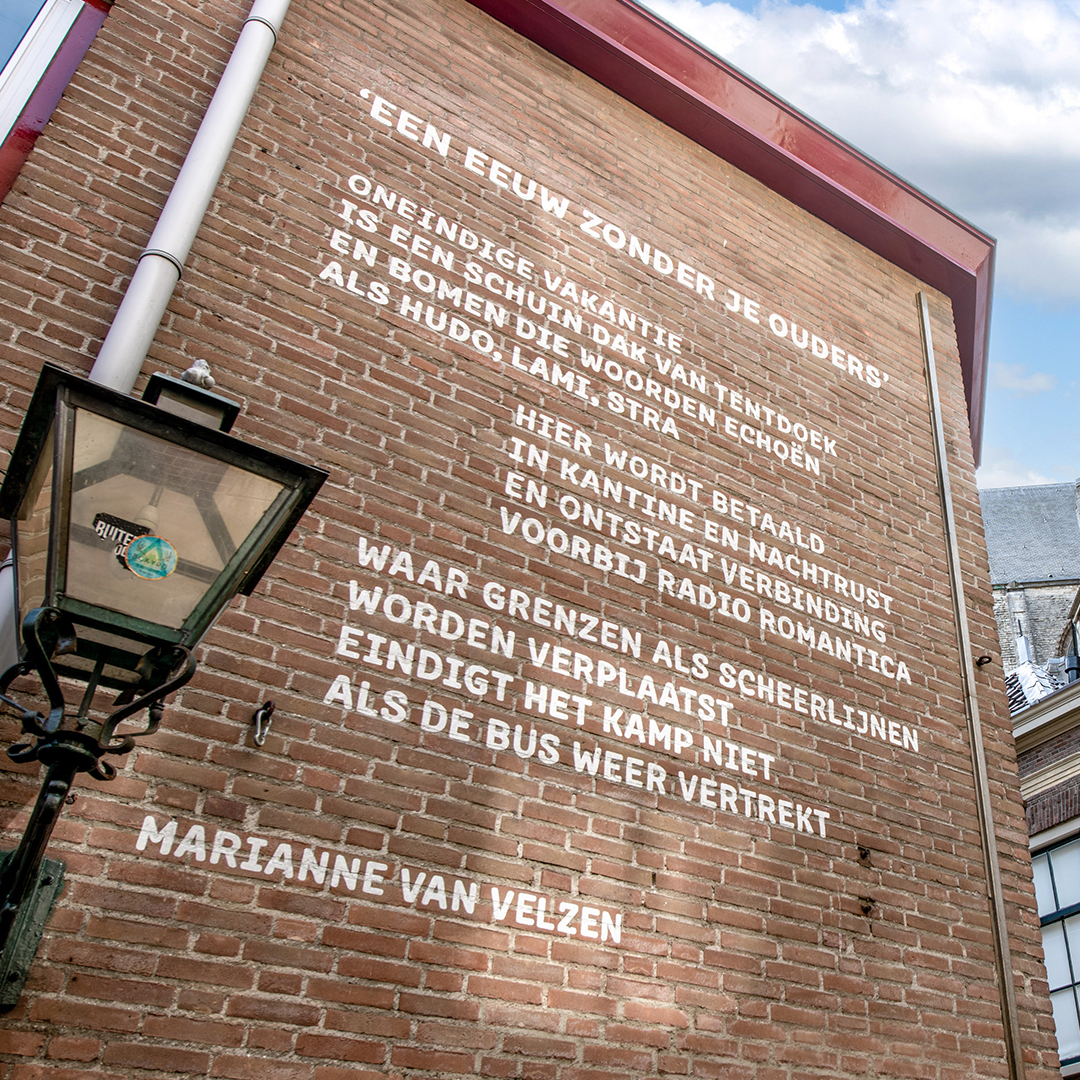 ‘EEN EEUW ZONDER JE OUDERS’
ONEINDIGE VAKANTIE
IS EEN SCHUIN DAK VAN TENTDOEK
EN BOMEN DIE WOORDEN ECHOËN
ALS HUDO, LAMI, STRA
HIER WORDT BETAALD
IN KANTINE EN NACHTRUST
EN ONTSTAAT VERBINDING
VOORBIJ RADIO ROMANTICA
WAAR GRENZEN ALS SCHEERLIJNEN
WORDEN VERPLAATST
EINDIGT HET KAMP NIET
ALS DE BUS WEER VERTREKT
MARIANNE VAN VELZEN